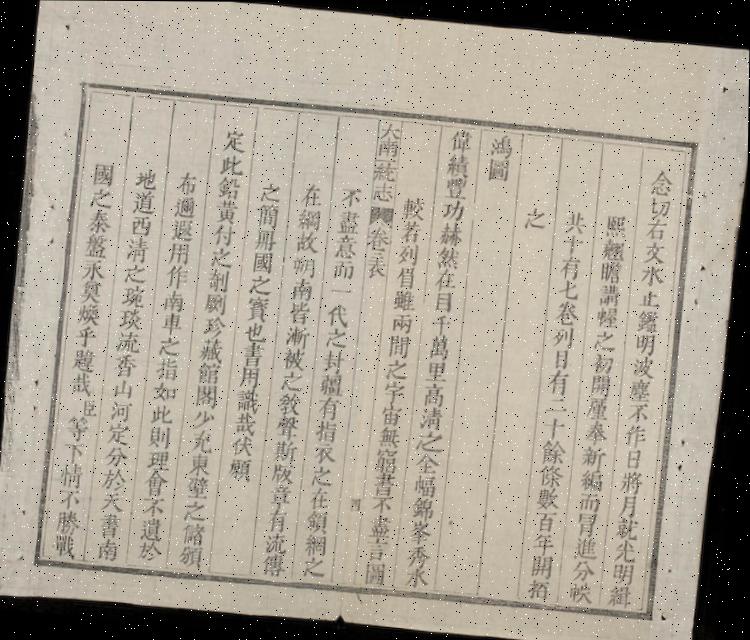 念切石文水止鑑明波塵不作日將月就光明緝
熙趨瞻講幄之初開厪奉新編而冒進分帙
共十有七卷列目有二十餘條數百年開拓
之
鴻圖
偉績豐功赫然在目千萬里高清之全幅錦峯秀水
較若列眉雖兩間之宇宙無窮書不盡言圖
大南一統志 卷 表
不盡意而一代之封疆有指衣之在領綱之
在綱故朔南皆漸被之敎聲斯版章有流傳
之簡冊國之寶也書用識哉伏願
定此鉛黃付之剞劂珍藏館閣少充東壁之儲頒
布邇遐用作南車之指如此則理會不遺於
地道西清之琬琰流香山河定分於天書南
國之泰盤永奠煥乎韙哉臣等下情不勝戰